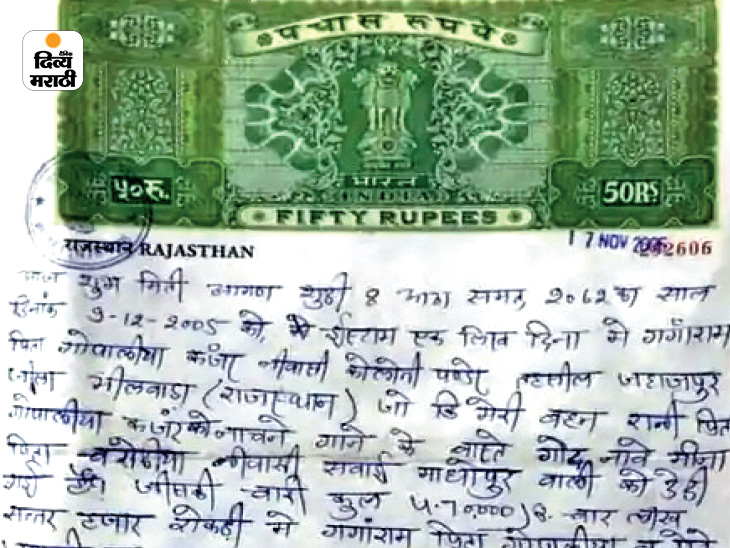 दिव्य
मराठी
पचास रूपये
भारत
INDIA
५०रु.
50RS
FIFTY RUPEES
राजस्थान RAJASTHAN
17 NOV 2005
292606
आज शुभ मिती शुदी 8 समत, 2062 का साल
दिनांक 9-12-2005 को, ईस्टाम एक लिख दिना मे गगाँराम
पिता गोपालीया कजंर नीवासी पण्डेर तहसील जहाजपुर
जीला भीलवाडा (राजस्थान) जो कि मेरी बहन रानी पिता
गोपालीया कजंर को नाचने गाने के वास्ते गोद, मीना
पिता नीवासी सवाई माधोपुर वाली को देदी
गई हैं जीसकी कुल ५.70,000)रु. चार लाख
सत्तर हजार रोकडी मे गगांराम पिता गोपालीया